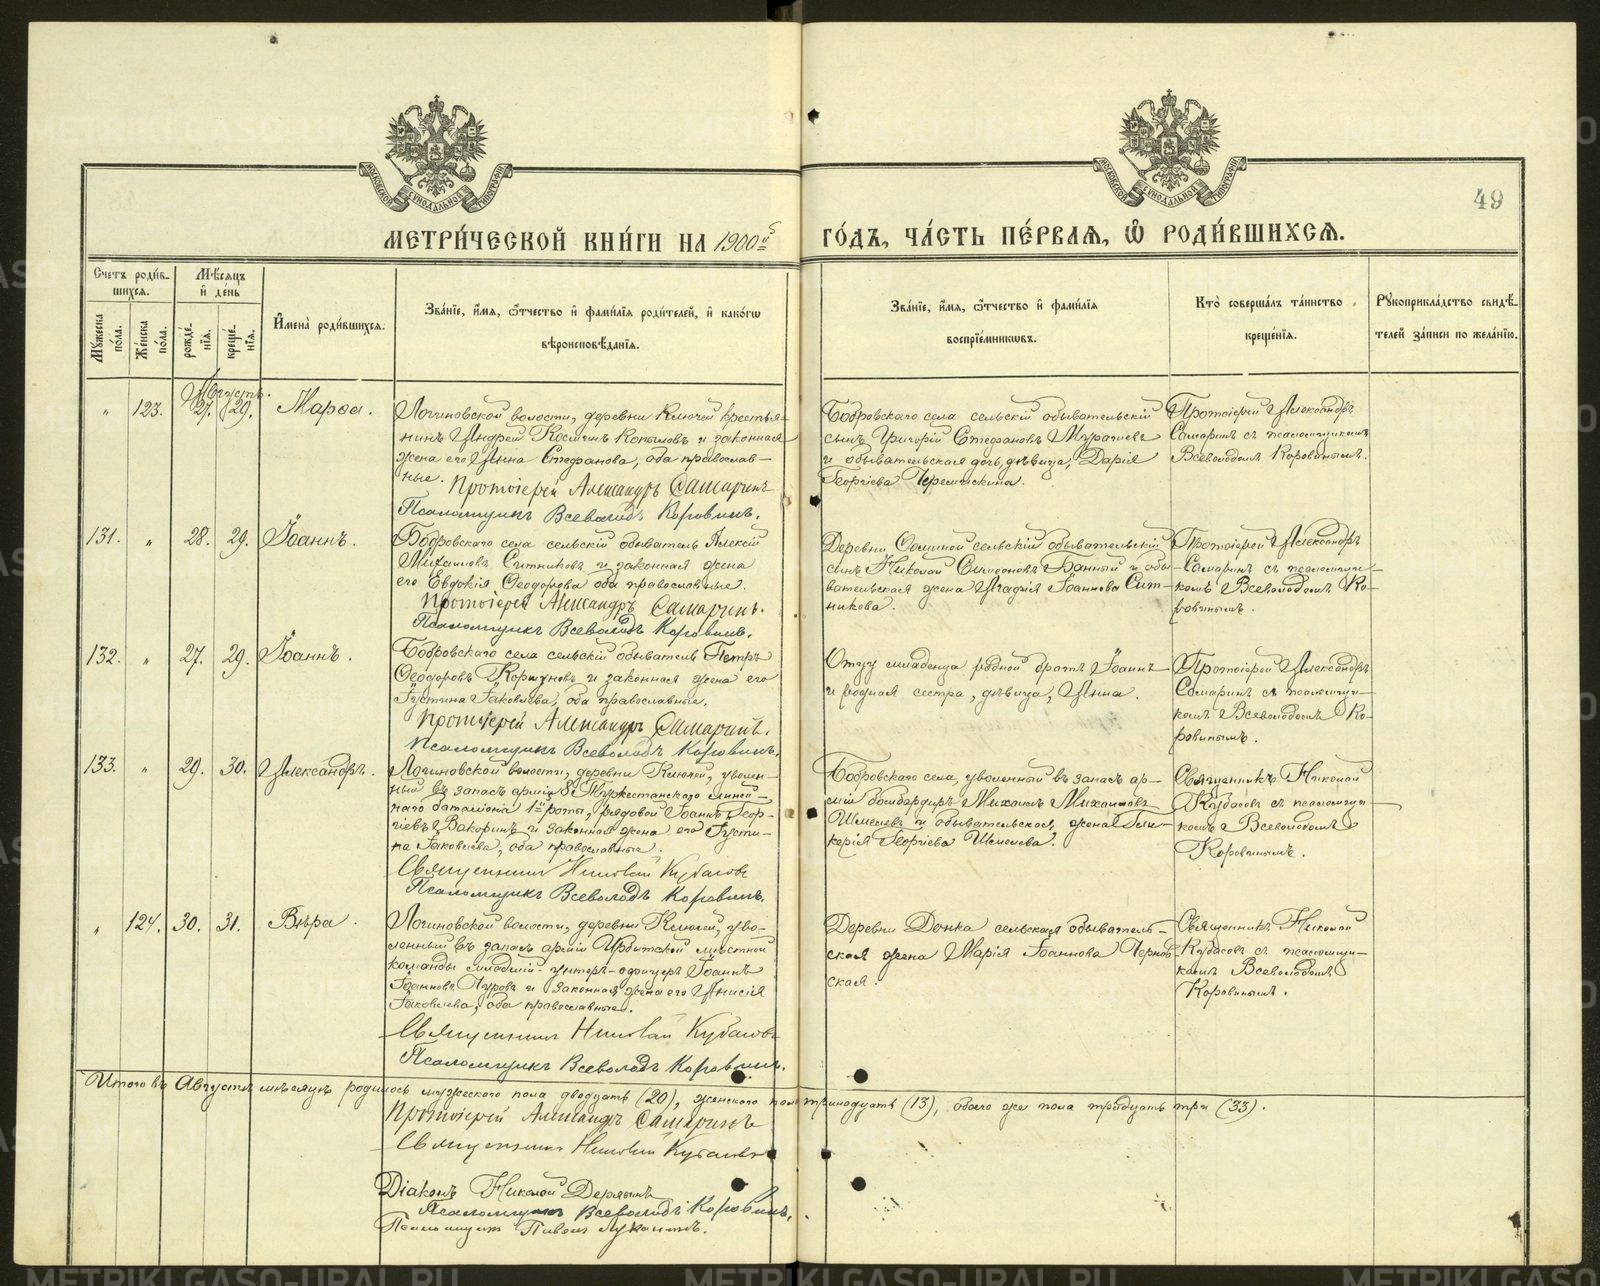 49
МЕТРИ́ЧЕСКОЙ КНИ́ГИ НА 1900й
ГО́ДЪ, ЧА́СТЬ ПЕ́РВАЯ, Ѽ РОДИ́ВШИХСЯ.
Счетъ роди́в-
шихся.
Мѣ́сяцъ
и҆ де́нь
Мꙋ́жеска по́ла.
Же́нска по́ла.
рожде́-
нїѧ.
креще́-
нїѧ.
И҆мена̀ роди́вшихся.
Зва́нїе, и҆́мѧ, ѻ҆́тчество и҆ фами́лїѧ роди́телей, и҆ како́гѡ
вѣроисповѣ́данїѧ.
Зва́нїе, и҆́мѧ, ѻ҆́тчество и҆ фами́лїѧ
воспрїе́мникѡвъ.
Кто̀ соверша́лъ та́инство
креще́нїѧ.
Рꙋкоприкла́дство свидѣ́-
телей за́писи по жела́нїю.
Августъ.
" 123. 27. 29. Марѳа.
Логиновской волости, деревни Ключей крестья-
нинъ Андрей Космичъ Копыловъ и законная
жена его Анна Стефанова, оба православ-
ные. Протоіерей Александръ Самаринъ
Псаломщикъ Всеволодъ Коровинъ.
Бобровскаго села сельскій обывательскій
сынъ Григорій Стефановъ Мурачевъ
и обывательская дочь, дѣвица, Дарія
Георгіева Черемискина.
Протоіерей Александръ
Самаринъ съ псаломщикомъ
Всеволодомъ Коровинымъ.
131. " 28. 29. Іоаннъ.
Бобровскаго села сельскій обыватель Алексій
Михаиловъ Ситниковъ и законная жена
его Евдокія Ѳеодорова оба православные.
Протоіерей Александръ Самаринъ.
Псаломщикъ Всеволодъ Коровинъ.
Деревни сельскій обывательскій
сынъ Николай Симеоновъ Банный и обы-
вательская жена Агафія Іоаннова Сит-
никова.
Протоіерей Александръ
Самаринъ съ псаломщи-
комъ Всеволодомъ Ко-
ровинымъ.
132. " 27. 29. Іоаннъ.
Бобровскаго села сельскій обыватель Петръ
Ѳеодоровъ Коршуновъ и законная жена его
Іустина Іаковлева, оба православные.
Протоіерей Александръ Самаринъ.
Псаломщикъ Всеволодъ Коровинъ.
Отцу младенца родной братъ Іоаннъ
и родная сестра, дѣвица, Анна.
Протоіерей Александръ
Самаринъ съ псаломщи-
комъ Всеволодомъ Ко-
ровинымъ.
133. " 29. 30. Александръ.
Логиновской волости, деревни Ключей, уволен-
ный въ запасъ арміи 8й Туркестанскаго линей-
наго баталіона 1й роты, рядовой Іоаннъ Геор-
гіевъ Вакоринъ и законная жена его Іусти-
на Іаковлева, оба православные.
Священникъ Николай Кубасовъ
Псаломщикъ Всеволодъ Коровинъ.
Бобровскаго села, уволенный въ запасъ ар-
міи бомбардиръ Михаилъ Михаиловъ
Шмелевъ и обывательская жена Гли-
керія Георгіева Шмелева.
Священникъ Николай
Кубасовъ съ псаломщи-
комъ Всеволодомъ
Коровинымъ.
" 124. 30. 31. Вѣра.
Логиновской волости, деревни Ключей, уво-
ленный въ запасъ арміи Ирбитской мѣстной
команды младшій унтеръ-офицеръ Іоаннъ
Іоанновъ и законная жена его Анисія
Іаковлева, оба православные.
Священникъ Николай Кубасовъ
Псаломщикъ Всеволодъ Коровинъ.
Деревни Донка сельская обыватель-
ская жена Марія Іоаннова Чернов-
ская.
Священникъ Николай
Кубасовъ съ псаломщи-
комъ Всеволодомъ
Коровинымъ.
Итого въ Августѣ мѣсяцѣ родилось мужескаго пола двадцать (20), женскаго пола тринадцать (13), обоего же пола тридцать три (33).
Протоіерей Александръ Самаринъ
Священникъ Николай Кубасовъ
Діаконъ Николай Дерябинъ
Псаломщикъ Всеволодъ Коровинъ.
Псаломщикъ Павелъ Луканинъ.
METRIKI.GASO-URAL.RU